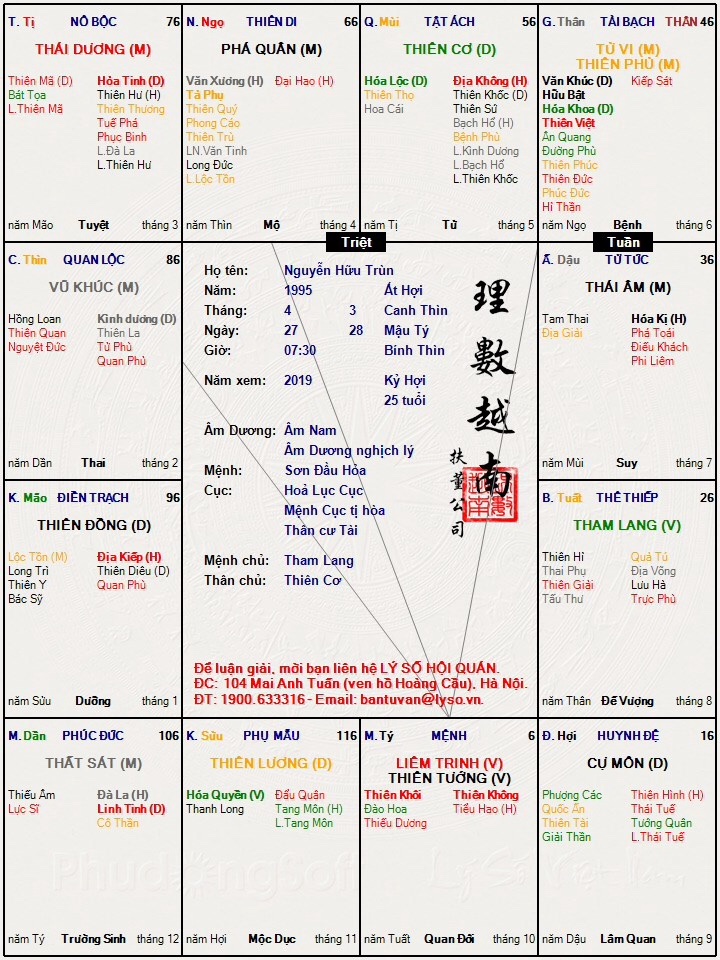 T. Tị NÔ BỘC 76
THÁI DƯƠNG (M)
Thiên Mã (D) Hỏa Tinh (D)
Bát Tọa Thiên Hư (H)
L.Thiên Mã Thiên Thương
Tuế Phá
Phục Binh
L.Đà La
L.Thiên Hư
năm Mão Tuyệt tháng 3
N. Ngọ THIÊN DI 66
PHÁ QUÂN (M)
Văn Xương (H) Đại Hao (H)
Tả Phụ
Thiên Quý
Phong Cáo
Thiên Trù
LN.Văn Tinh
Long Đức
L.Lộc Tồn
năm Thìn Mộ tháng 4
Q. Mùi TẬT ÁCH 56
THIÊN CƠ (D)
Hóa Lộc (D) Địa Không (H)
Thiên Thọ Thiên Khốc (D)
Hoa Cái Thiên Sứ
Bạch Hổ (H)
Bệnh Phù
L.Kình Dương
L.Bạch Hổ
L.Thiên Khốc
năm Tị Tử tháng 5
G. Thân TÀI BẠCH THÂN 46
TỬ VI (M)
THIÊN PHỦ (M)
Văn Khúc (D) Kiếp Sát
Hữu Bật
Hóa Khoa (D)
Thiên Việt
Ân Quang
Đường Phù
Thiên Phúc
Thiên Đức
Phúc Đức
Hỉ Thần
năm Ngọ Bệnh tháng 6
Triệt
Tuần
C. Thìn QUAN LỘC 86
VŨ KHÚC (M)
Hồng Loan Kình dương (D)
Thiên Quan Thiên La
Nguyệt Đức Tử Phù
Quan Phủ
năm Dần Thai tháng 2
Họ tên: Nguyễn Hữu Trùn
Năm: 1995 Ất Hợi
Tháng: 4 3 Canh Thìn
Ngày: 27 28 Mậu Tý
Giờ: 07:30 Bính Thìn
Năm xem: 2019 Kỷ Hợi
25 tuổi
Âm Dương: Âm Nam
Âm Dương nghịch lý
Mệnh: Sơn Đầu Hỏa
Cục: Hoả Lục Cục
Mệnh Cục tị hòa
Thân cư Tài
Mệnh chủ: Tham Lang
Thân chủ: Thiên Cơ
理數越南
扶董公司
Để luận giải, mời bạn liên hệ LÝ SỐ HỘI QUÁN.
ĐC: 104 Mai Anh Tuấn (ven hồ Hoàng Cầu), Hà Nội.
ĐT: 1900.633316 - Email: bantuvan@lyso.vn.
Ấ. Dậu TỬ TỨC 36
THÁI ÂM (M)
Tam Thai Hóa Kị (H)
Địa Giải Phá Toái
Điếu Khách
Phi Liêm
năm Mùi Suy tháng 7
K. Mão ĐIỀN TRẠCH 96
THIÊN ĐỒNG (D)
Lộc Tồn (M) Địa Kiếp (H)
Long Trì Thiên Diêu (D)
Thiên Y Quan Phù
Bác Sỹ
năm Sửu Dưỡng tháng 1
B. Tuất THÊ THIẾP 26
THAM LANG (V)
Thiên Hỉ Quả Tú
Thai Phụ Địa Võng
Thiên Giải Lưu Hà
Tấu Thư Trực Phù
năm Thân Đế Vượng tháng 8
M. Dần PHÚC ĐỨC 106
THẤT SÁT (M)
Thiếu Âm Đà La (H)
Lực Sĩ Linh Tinh (D)
Cô Thần
năm Tý Trường Sinh tháng 12
K. Sửu PHỤ MẪU 116
THIÊN LƯƠNG (D)
Hóa Quyền (V) Đẩu Quân
Thanh Long Tang Môn (H)
L.Tang Môn
năm Hợi Mộc Dục tháng 11
M. Tý MỆNH 6
LIÊM TRINH (V)
THIÊN TƯỚNG (V)
Thiên Khôi Thiên Không
Đào Hoa Tiểu Hao (H)
Thiếu Dương
năm Tuất Quan Đới tháng 10
Đ. Hợi HUYNH ĐỆ 16
CỰ MÔN (D)
Phượng Các Thiên Hình (H)
Quốc Ấn Thái Tuế
Thiên Tài Tướng Quân
Giải Thần L.Thái Tuế
năm Dậu Lâm Quan tháng 9
Phudongsoft
Lý Số Việt Nam